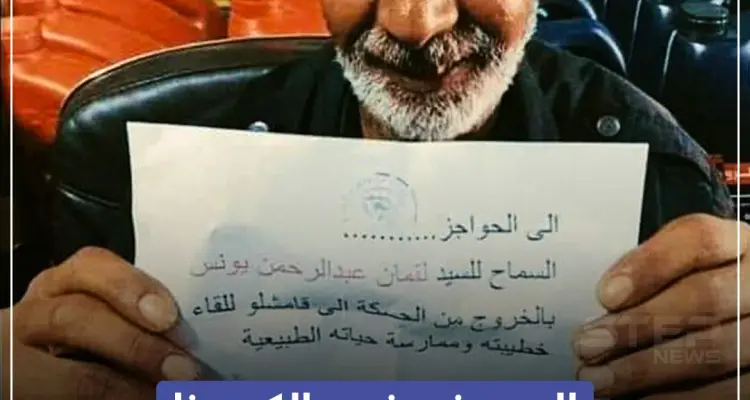 الى الحواجز...........
السماح للسيد لقمان عبدالرحمن يونس
بالخروج من الحسكة الى قامشلو للقاء
خطيبته وممارسة حياته الطبيعية
STEP
NEWS